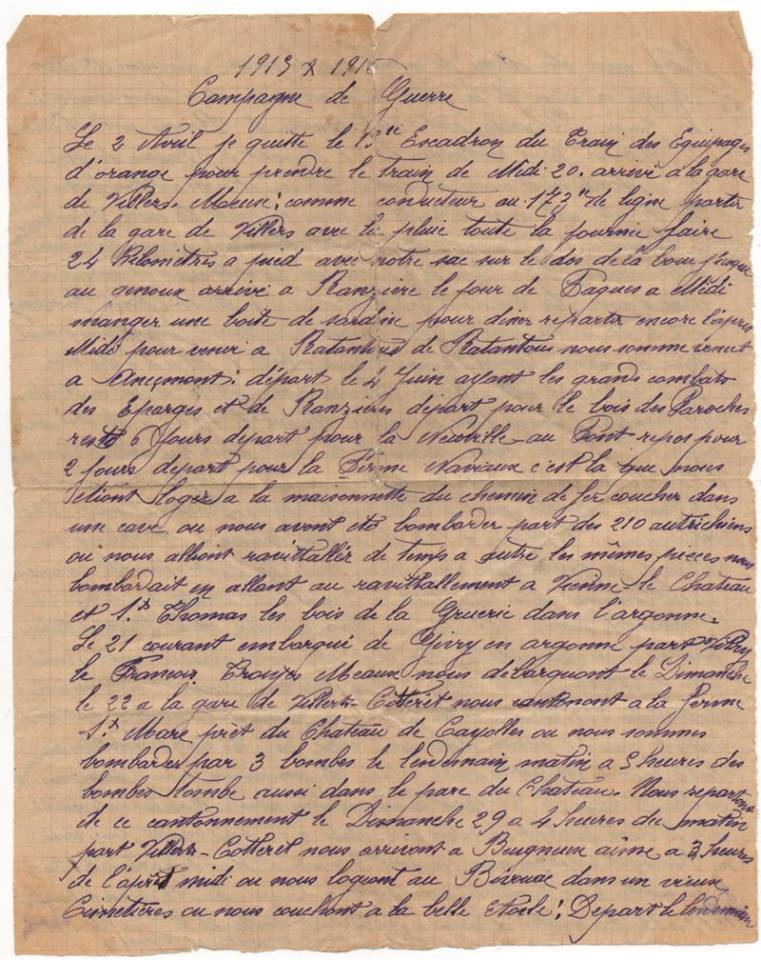 1915 & 191
Campagne de Guerre
Le 2 Avril je quitte le 19me Escadron du Train des Equipages
d'orange pour prendre le train de Midi 20. arrivé a la gare
de Villers. Meuse; comme conducteur au 173e de ligne partir
de la gare de Villers avec la pluie toute la journée faire
24 Kilomètres a pied avec notre sac sur le dos de la boue jusque
au genoux arrivé a Ranzière le jour de Paques a Midi
manger une boite de sardin pour diner repartir encore l'après
Midi pour venir a Ratantous de Ratantous nous somme venut
a Ancemont: départ le 4 Juin ayant les grands combats
des Eparges et de Ranzières départ pour le bois des Paroches
resté 6 Jours départ pour la Neuville-au Pont repos pour
2 jours départ pour la Ferme Naviaux c'est la que nous
étiont loger a la maisonnette du chemin de fer coucher dans
une cave ou nous avont été bombarder part des 210 autrichiens
ou nous alliont ravittallir de temps a autre les mêmes pieces nous
bombardait en allant au ravittallement a Vienne-le Chateau
et St Thomas les bois de la Gruerie dans l'argonne.
Le 21 courant embarqué de Givry en argonne part Vitry
le Francois. Troyes Meaux nous debarquont le Dimanche
le 22 a la gare de Villers-Cotterêt nous cantonont a la ferme
St Marc prêt du Chateau de Cayolles ou nous sommes
bombardés par 3 bombes le lendemain matin a 5 heures des
bombes tombe aussi dans le parc du Chateau. Nous repartons
de ce cantonnement le Dimanche 29 a 4 heures du matin
part Villers-Cotteret nous arrivont a Beugneux aisne a 3 heures
de l'après midi ou nous logeont au Bivouac dans un vieux
Cimetières ou nous couchont a la belle Etoile! Depart le lendemain